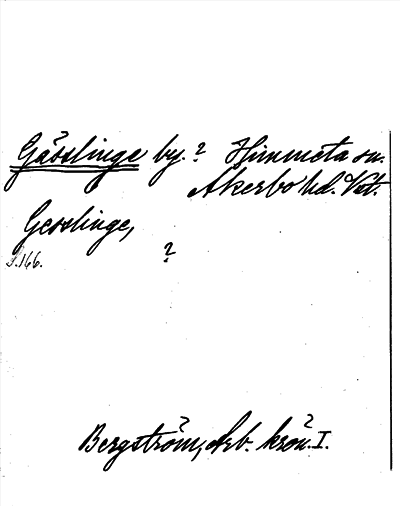 Gässlinge by. ? Himmeta sn.
Åkerbo hd. Vst.
Gesslinge,
S. 166.
?
Bergström, Arb. krön. I.